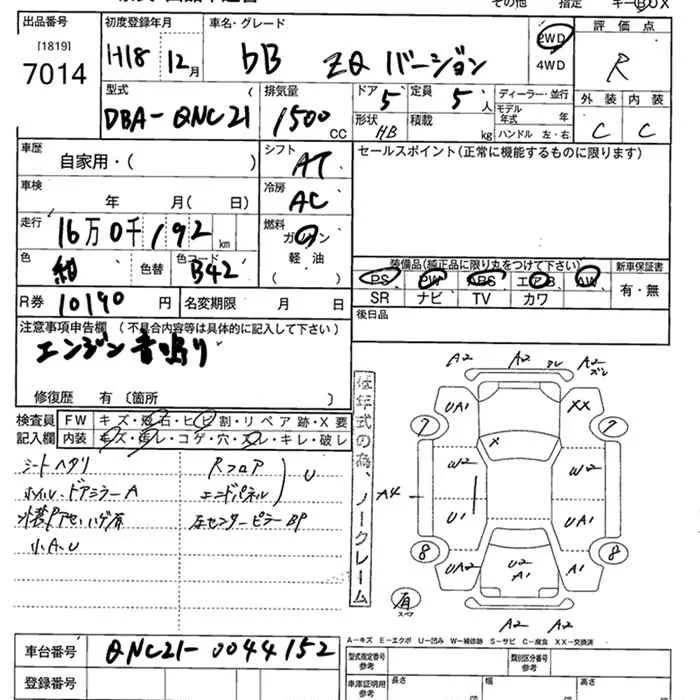 その他 指定 キーBOX
出品番号
[1819]
7014
初度登録年月
H18 12月
車名・グレード
bB ZQ バージョン
2WD
4WD
評価点
R
外装 内装
C C
型式
DBA-QNC21
排気量
1500 CC
ドア 5
定員 5 人
形状 HB
積載 kg
ディーラー・並行
モデル年式 年
ハンドル 左・右
車歴
自家用・( )
シフト
AT
セールスポイント(正常に機能するものに限ります)
車検
年 月( 日)
冷房
AC
走行
16万0千192km
燃料
ガソリン
軽油
( )
色
紺
色替
色コード
B42
装備品(純正品に限り丸をつけて下さい)
PS PW ABS エアB AW
SR ナビ TV カワ
新車保証書
有・無
R券 10190円
名変期限 月 日
後日品
注意事項申告欄(不具合内容等は具体的に記入して下さい)
エンジン音鳴り
修復歴 有〔箇所 〕
検査員
記入欄
FW キズ・飛石・ヒビ割・リペア跡・X要
内装 キズ・汚レ・コゲ・穴・スレ・キレ・破レ
シートヘタリ
ホイル・ドアミラーA
小A、U
Rフロア
エンドパネル
U
左センターピラーBP
低年式の為、ノークレーム
A2 A2 スレ A2 ズレ
UA1 XX
7 7
X
W2 W2
A4
U1 UA1
8 8
UA2 U2 A1 A1
有
スペア
A2 A2
A-キズ E-エクボ U-凹み W-補修跡 S-サビ C-腐食 XX-交換済
車台番号
QNC21-0044152
登録番号
型式指定番号
参考
類別区分番号
参考
車庫証明用
参考
長さ 幅 高さ